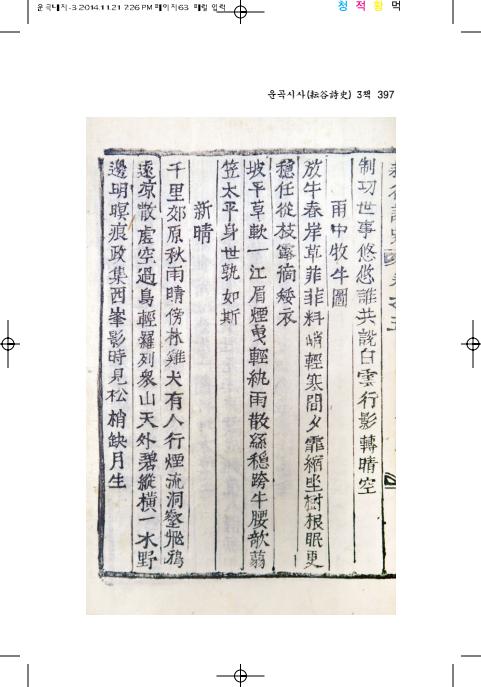 운곡내지-3 2014.11.21 7:26 PM 페이지63 매킬 입력
청 적 황 먹
운곡시사(耘谷詩史) 3책 397
制切世事悠悠誰共說白雲行影轉晴空
雨中牧牛圖
放牛春岸草菲菲料峭輕寒間夕霏縮坐樹根眠更
穩任從枝露滴綏衣
坡平草軟一江眉煙曳輕紈雨散絲穩跨牛腰欹蒻
笠太平身世孰如斯
新晴
千里郊原秋雨晴傍林雞犬有人行煙流洞壑飛鴉
遠凉散虛空過鳥輕羅列衆山天外碧縱橫一水野
邊明暝痕政集西峯影時見松梢缺月生